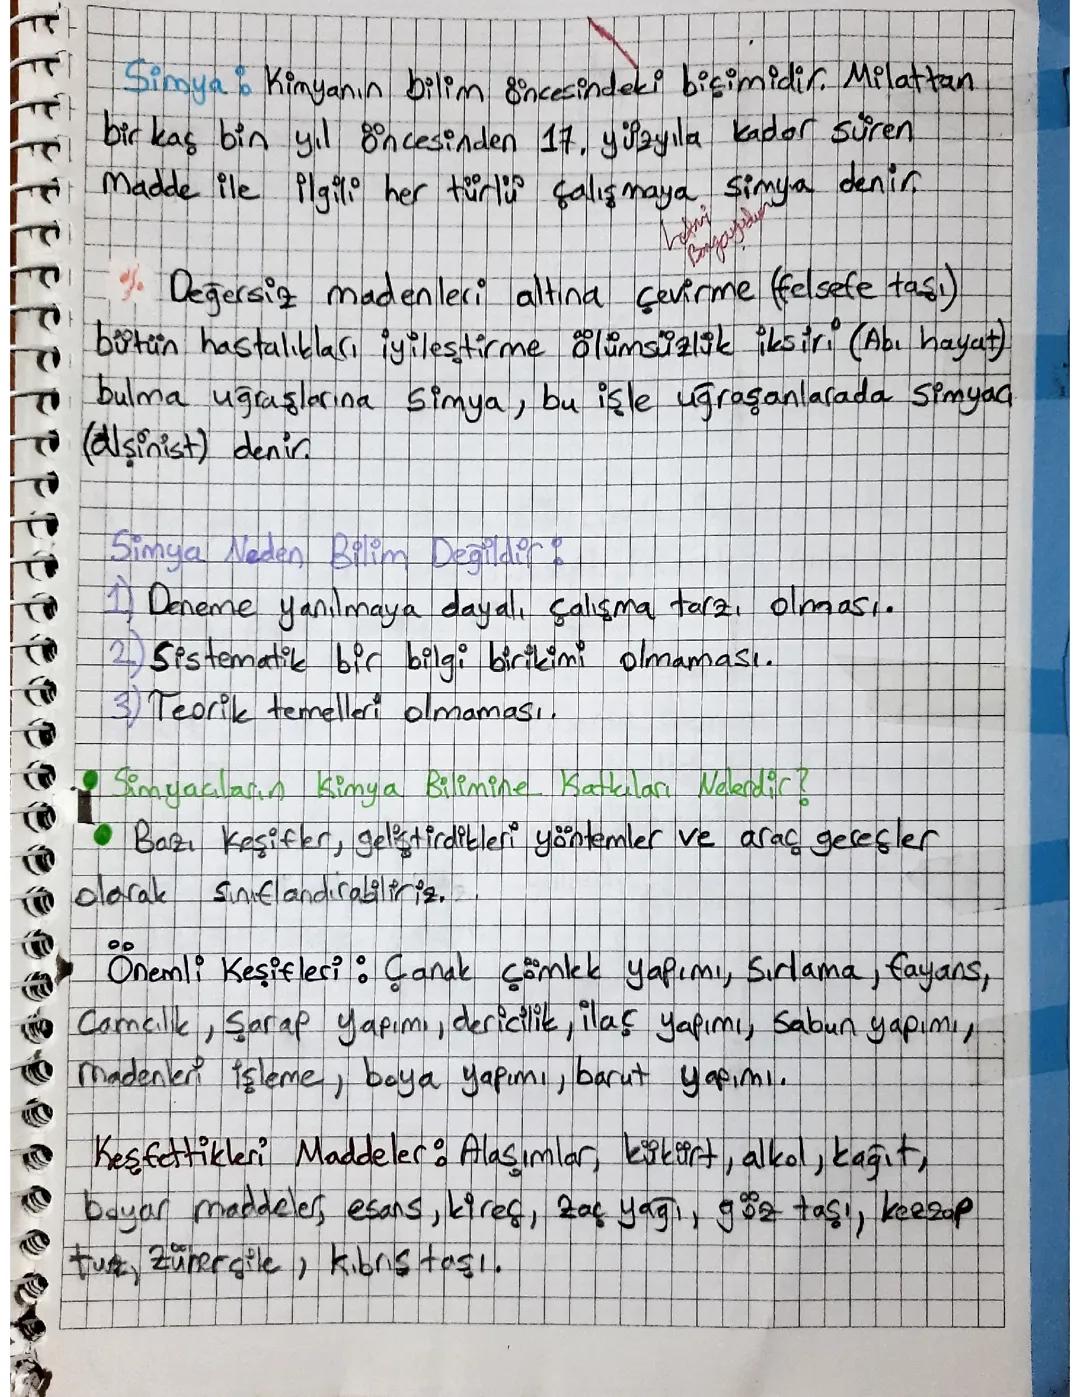 Simya : Kimyanın bilim öncesindeki biçimidir. Milattan
bir kaç bin yıl öncesinden 17. yüzyıla kadar süren
madde ile ilgili her türlü çalışmaya simya denir.
Değersiz madenleri altına çevirme (felsefe taşı)
bütün hastalıkları iyileştirme ölümsüzlük iksiri (Abı hayat)
bulma uğraşlarına simya, bu işle uğraşanlarada simyacı
(alşinist) denir.
Simya Neden Bilim Değildir :
1) Deneme yanılmaya dayalı çalışma tarzı olması.
2) Sistematik bir bilgi birikimi olmaması.
3) Teorik temelleri olmaması.
Simyacıların Kimya Bilimine Katkıları Nelerdir?
Bazı keşifler, geliştirdikleri yöntemler ve araç gereçler
olarak sınıflandırabiliriz.
Önemli Keşifleri : Çanak çömlek yapımı, sırlama, fayans,
Camcılık, şarap yapımı, dericilik, ilaç yapımı, sabun yapımı,
madenleri işleme, boya yapımı, barut yapımı.
Keşfettikleri Maddeler : Alaşımlar, kükürt, alkol, kağıt,
boyar maddeler, esans, kireç, zaç yağı, göz taşı, kezzap
tuz, Kıbrıs taşı.